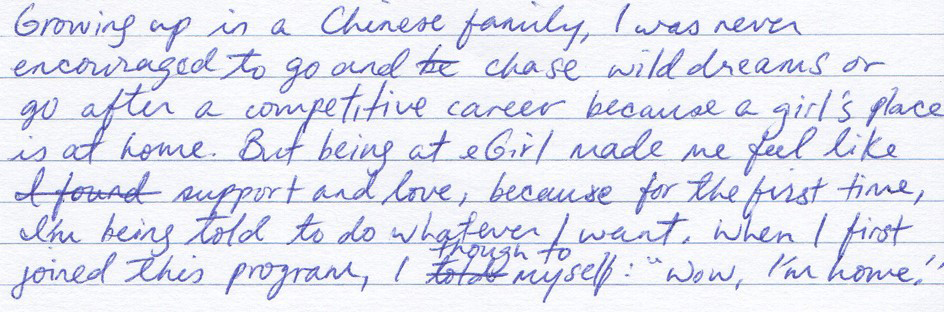 Growing up in a Chinese family, I was never
encouraged to go and be chase wild dreams or
go after a competitive career because a girl's place
is at home. But being at eGirl made me feel like
I found support and love, because for the first time,
I'm being told to do whatever I want. When I first
though to
joined this program, I told myself: "Wow, I'm home."